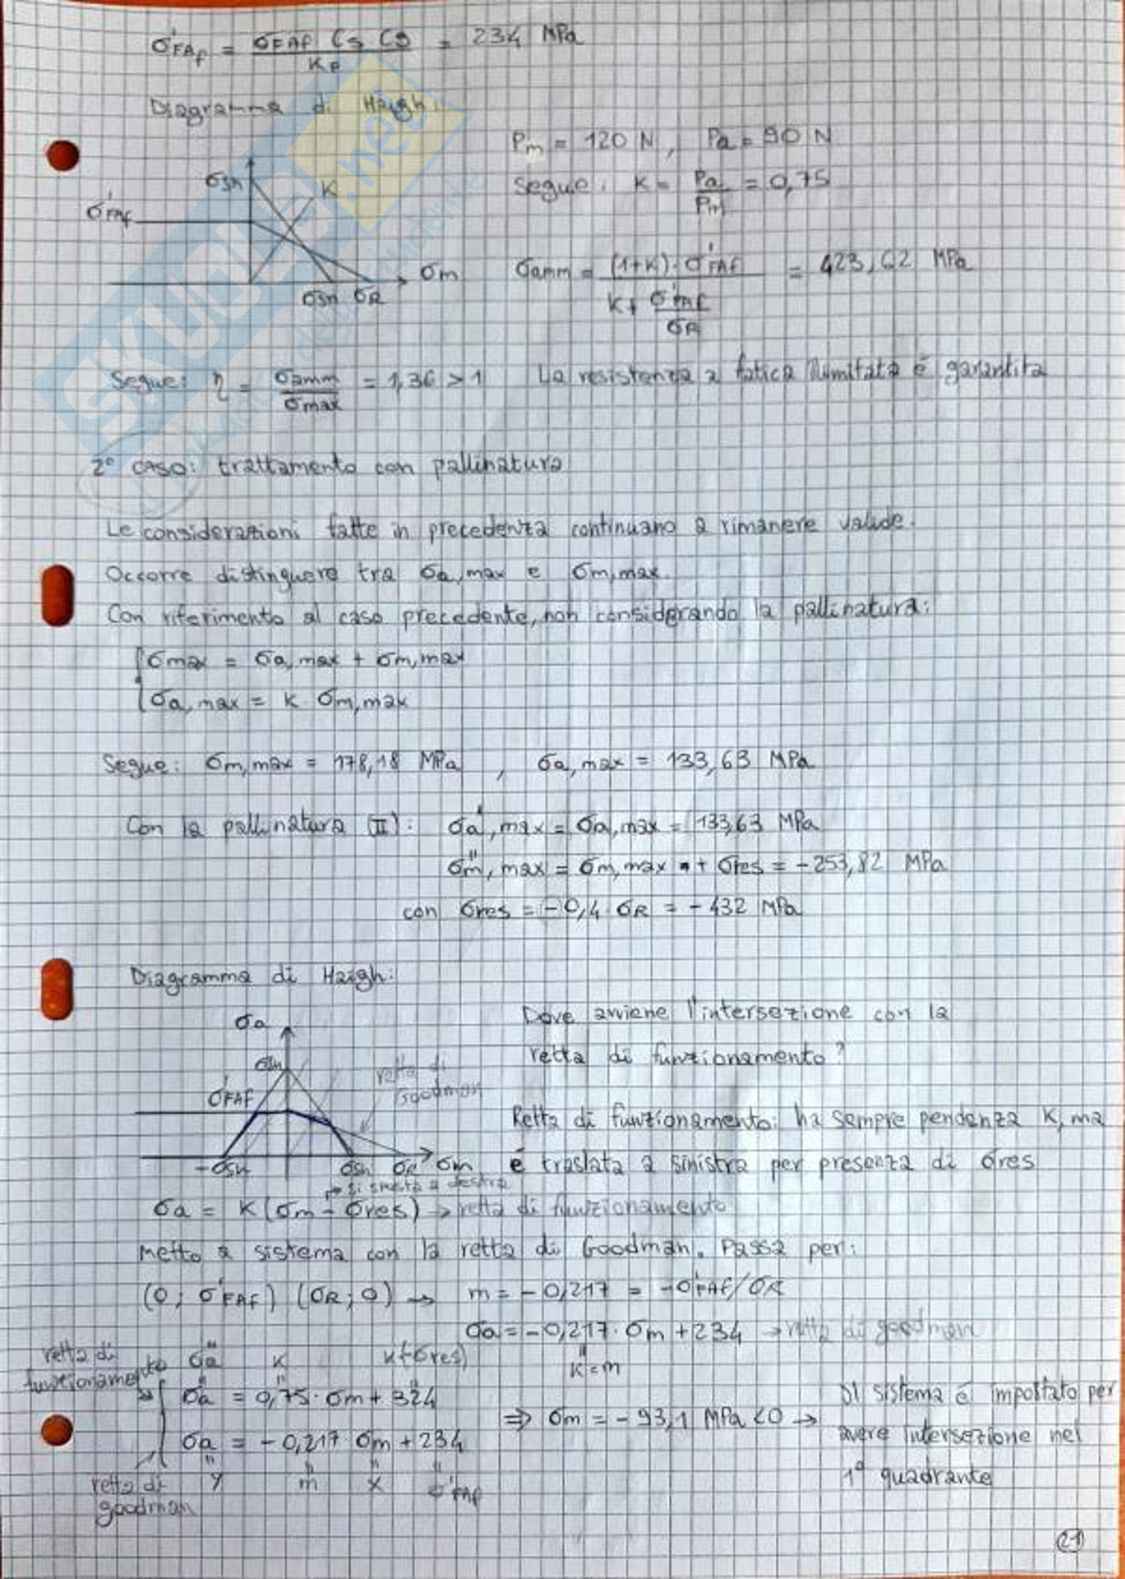 σ'FAf = σFAf Cs Cθ / KF = 234 MPa
Diagramma di Haigh:
Pm = 120 N, Pa = 90 N
Segue: K = Pa / Pm = 0,75
σsn
K
σ'FAf
σm
σsn σR
σamm = (1+K)·σ'FAf / (K + σ'FAf / σR) = 423,62 MPa
Segue: η = σamm / σmax = 1,36 > 1 La resistenza a fatica illimitata è garantita
2° caso: trattamento con pallinatura
Le considerazioni fatte in precedenza continuano a rimanere valide.
Occorre distinguere tra σa,max e σm,max.
Con riferimento al caso precedente, non considerando la pallinatura:
{σmax = σa,max + σm,max
{σa,max = K σm,max
Segue: σm,max = 178,18 MPa, σa,max = 133,63 MPa
Con la pallinatura (II): σa', max = σa,max = 133,63 MPa
σm'', max = σm,max + σres = -253,82 MPa
con σres = -0,4·σR = -432 MPa
Diagramma di Haigh:
Dove avviene l'intersezione con la
retta di funzionamento?
σa
σsn
retta di
Goodman
σ'FAF
-σsn σsn σR σm
Retta di funzionamento: ha sempre pendenza K, ma
è traslata a sinistra per presenza di σres
→ si sposta a destra
σa = K(σm - σres) → retta di funzionamento
Metto a sistema con la retta di Goodman. Passa per:
(0; σ'FAf) (σR; 0) → m = -0,217 = -σ'FAf/σR
σa = -0,217·σm + 234 → retta di goodman
K=m
retta di
funzionamento
σa K K(-σres)
σa = 0,75·σm + 324
σa = -0,217 σm + 234
⇒ σm = -93,1 MPa < 0 →
Il sistema è impostato per
avere intersezione nel
1° quadrante
retta di
goodman
y m x σ'FAf
21
SKUOLA.net